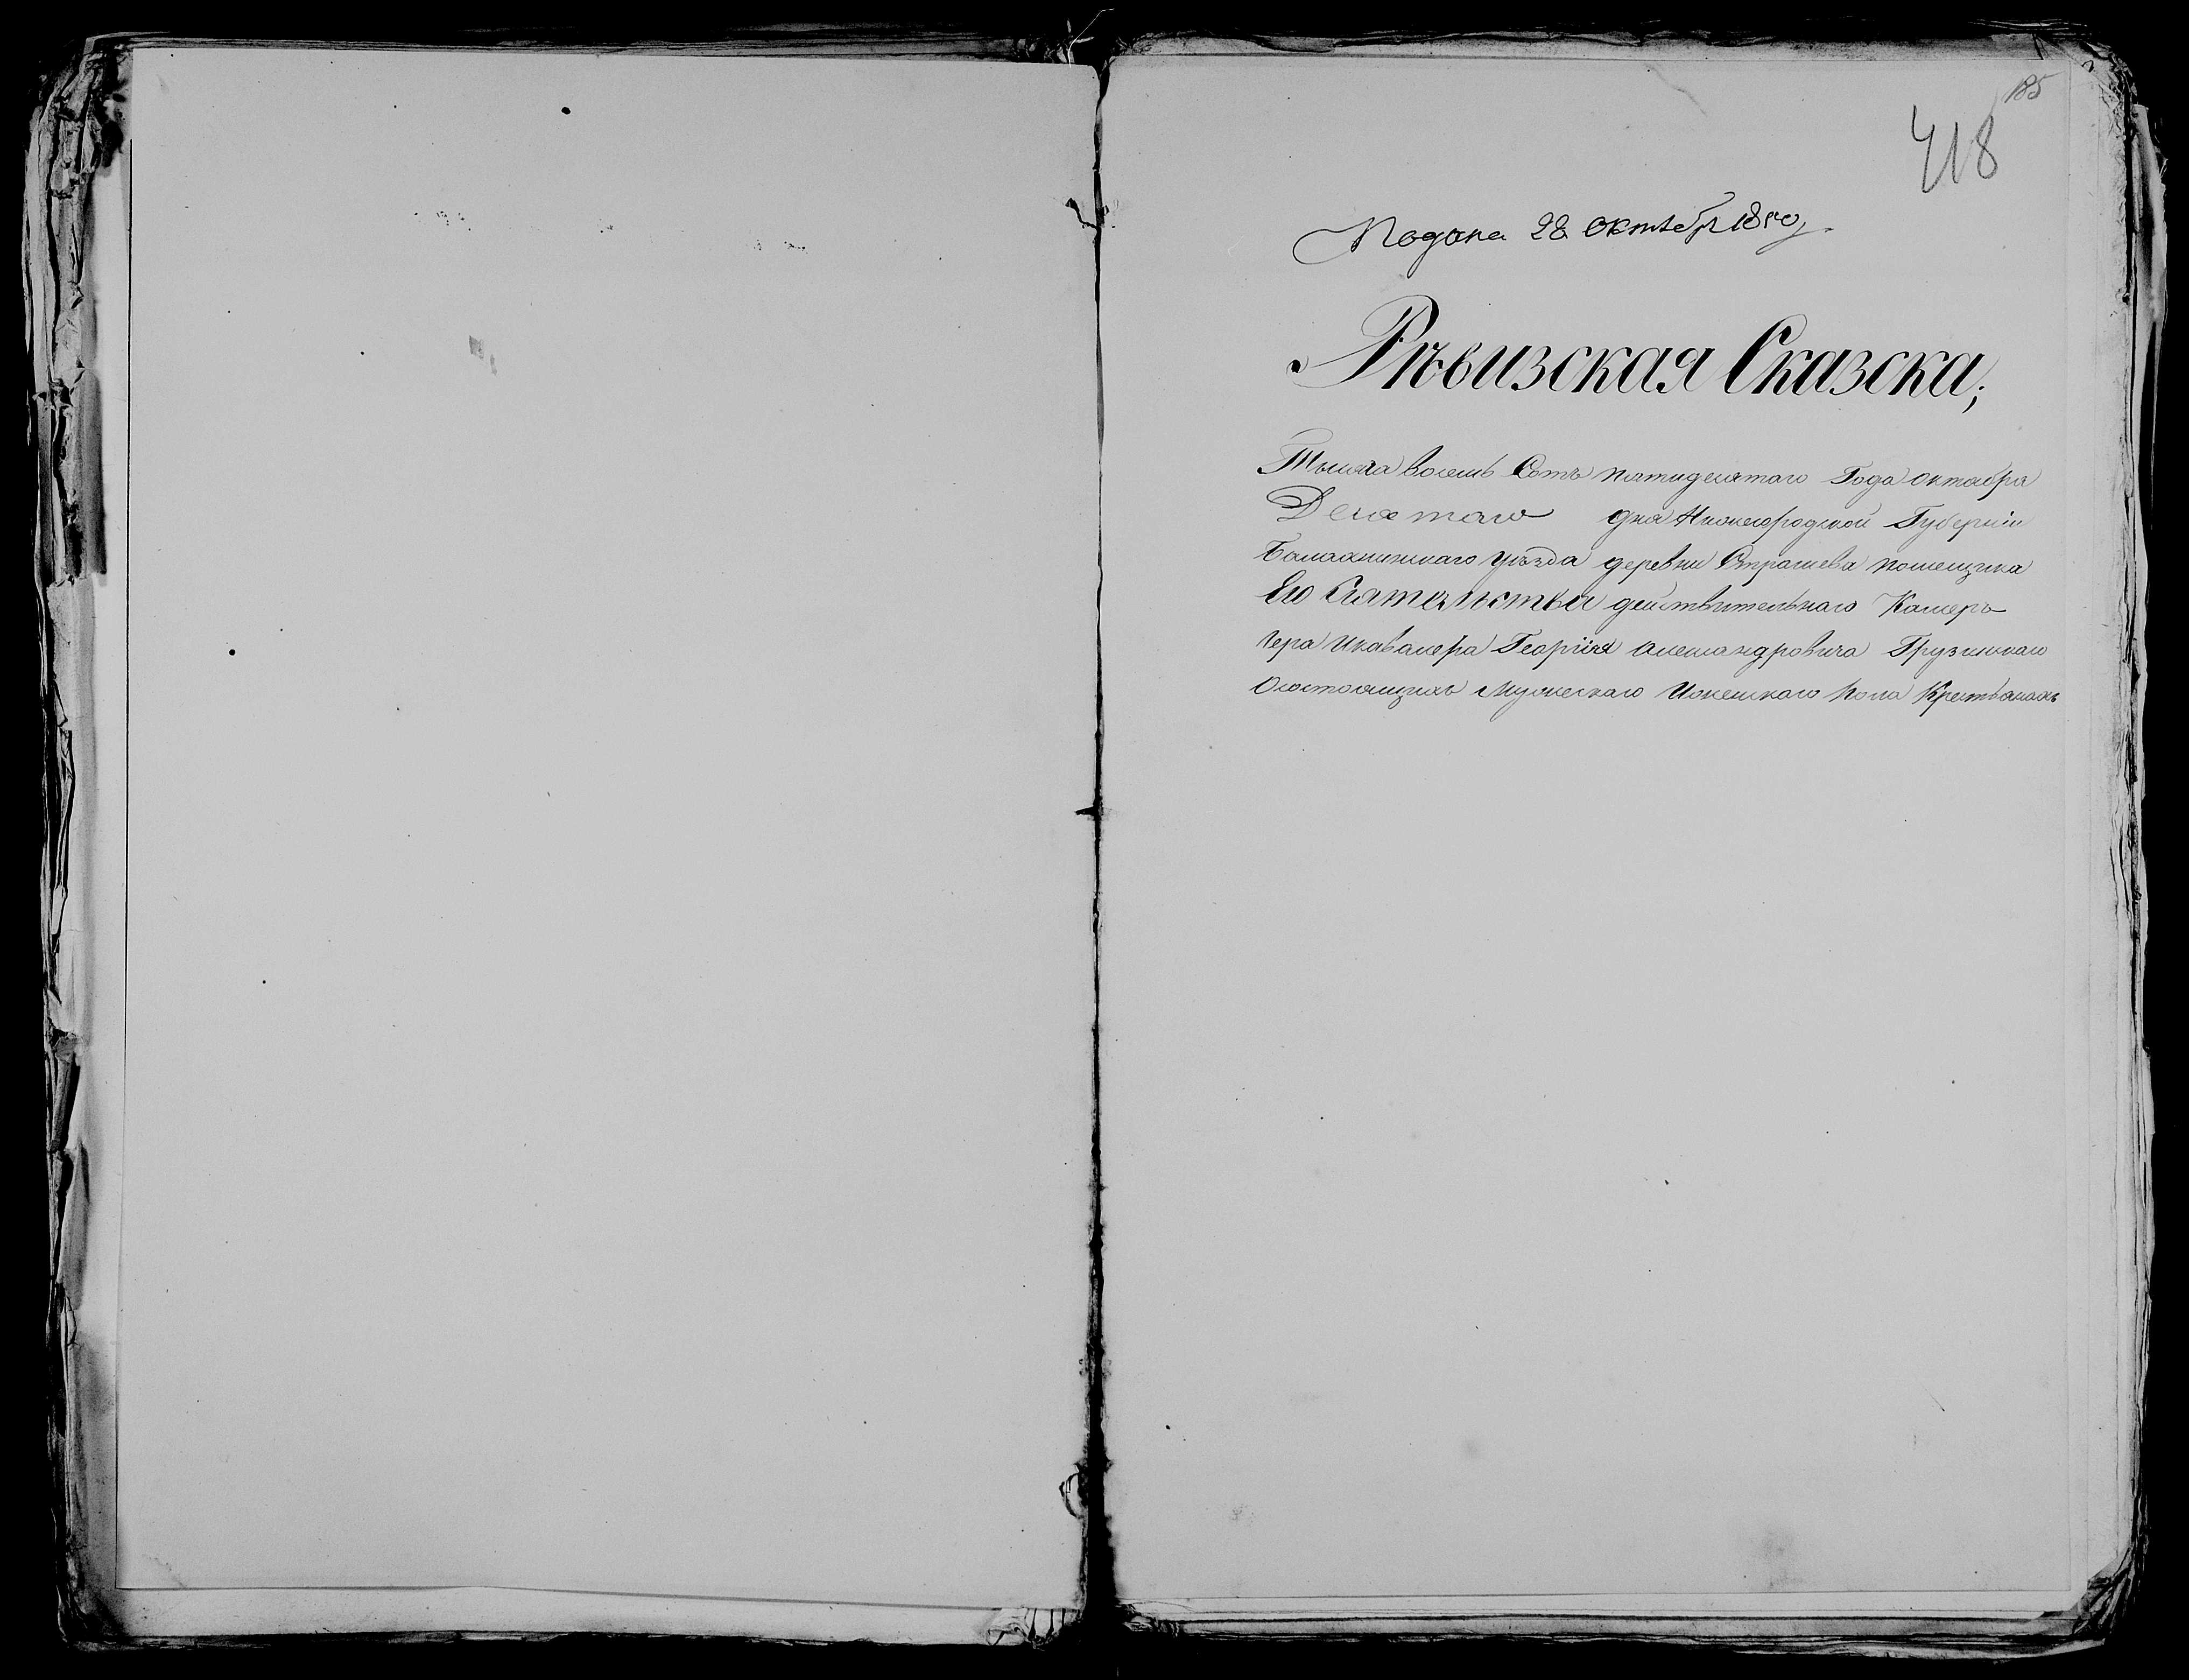 185
418
Подана 28 октября 1850 г.
Ревизская Сказска;
Тысяча восемь Сотъ пятидесятаго Года октября
Десятаго дня Нижегородской Губерніи
Балахнинскаго уѣзда деревни Страшева помещика
Его Сиятельства действительнаго Камеръ
Гера Икавалера Георгия Александровича Грузинскаго
Осостоящихъ Мужескаго Иженскаго пола Крестьянахъ